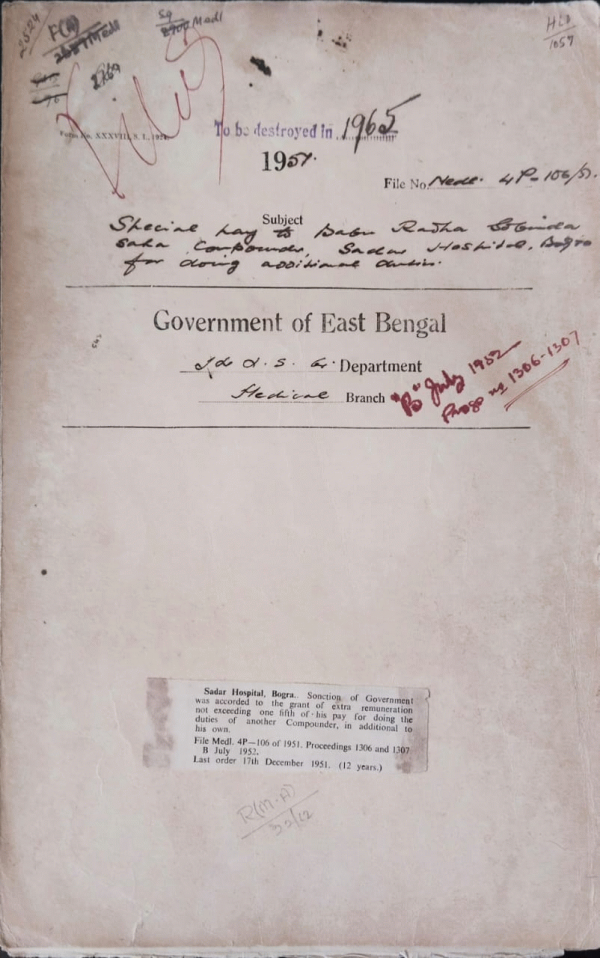 2524
F(A)
2627 Medl
2769
Sq
2700 Medl
HLD
1057
Filed
Form No. XXXVIII, S. I., 192
To be destroyed in 1965
1951.
File No. Medl. 4P-106/51.
Subject
Special pay to Babu Radha Gobinda
Saha Compounder, Sadar Hospital, Bogra
for doing additional duties.
Government of East Bengal
Department
Medical Branch
"B" July 1952
Progs nos 1306-1307
Sadar Hospital, Bogra. Sonction of Government
was accorded to the grant of extra remuneration
not exceeding one fifth of his pay for doing the
duties of another Compounder, in additional to
his own.
File Medl. 4P—106 of 1951. Proceedings 1306 and 1307
B July 1952.
Last order 17th December 1951. (12 years.)
R(M.A)
32/12